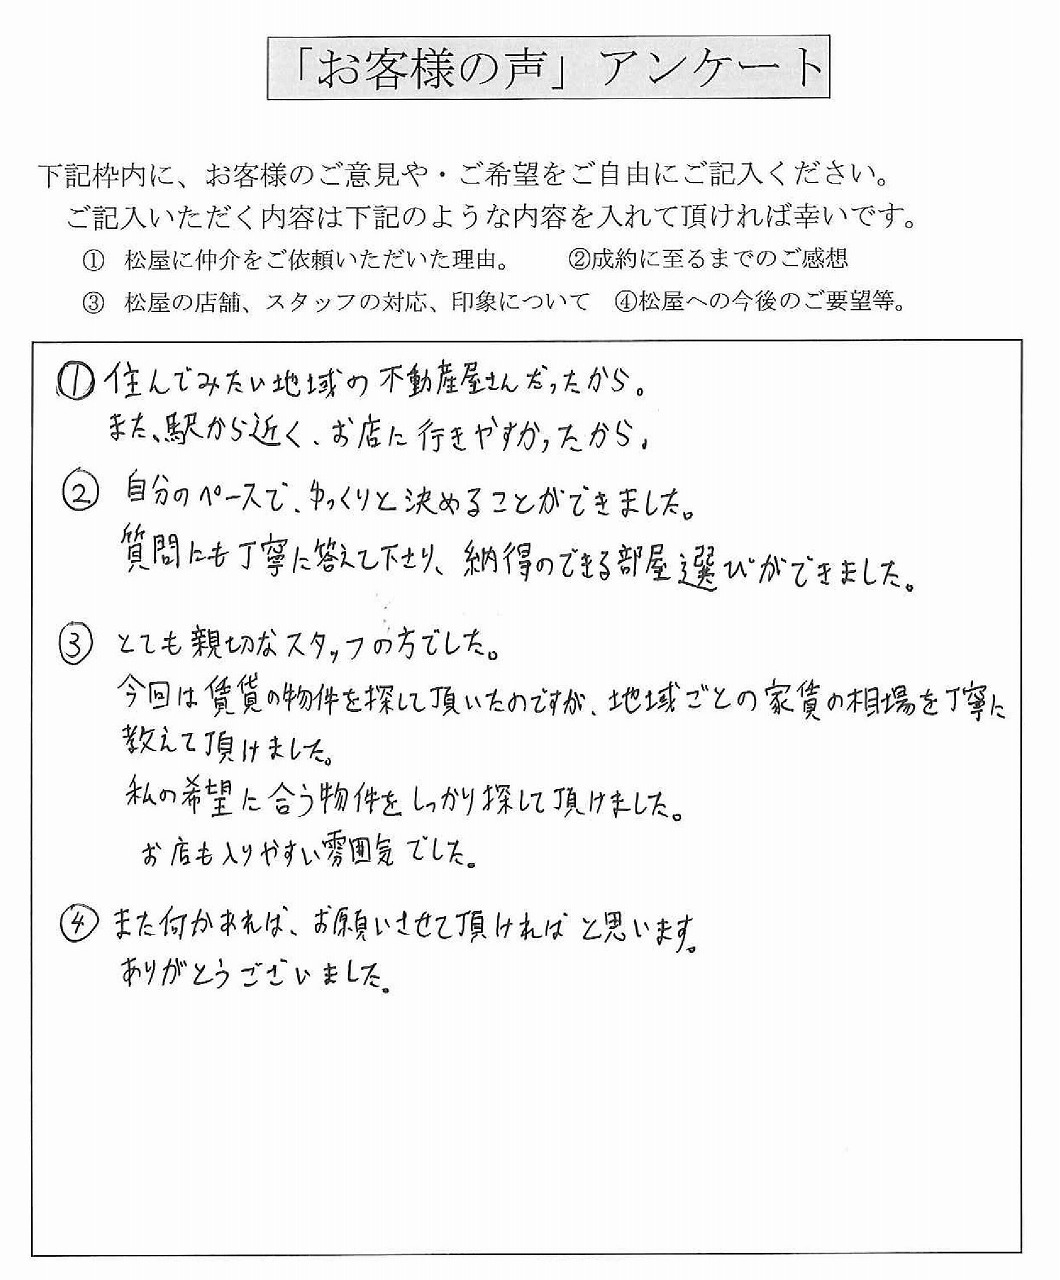 「お客様の声」アンケート
下記枠内に、お客様のご意見や・ご希望をご自由にご記入ください。
ご記入いただく内容は下記のような内容を入れて頂ければ幸いです。
① 松屋に仲介をご依頼いただいた理由。 ②成約に至るまでのご感想
③ 松屋の店舗、スタッフの対応、印象について ④松屋への今後のご要望等。
① 住んでみたい地域の不動産屋さんだったから。
また、駅から近く、お店に行きやすかったから。
② 自分のペースで、ゆっくりと決めることができました。
質問にも丁寧に答えて下さり、納得のできる部屋選びができました。
③ とても親切なスタッフの方でした。
今回は賃貸の物件を探して頂いたのですが、地域ごとの家賃の相場を丁寧に
教えて頂けました。
私の希望に合う物件をしっかり探して頂けました。
お店も入りやすい雰囲気でした。
④ また何かあれば、お願いさせて頂ければと思います。
ありがとうございました。